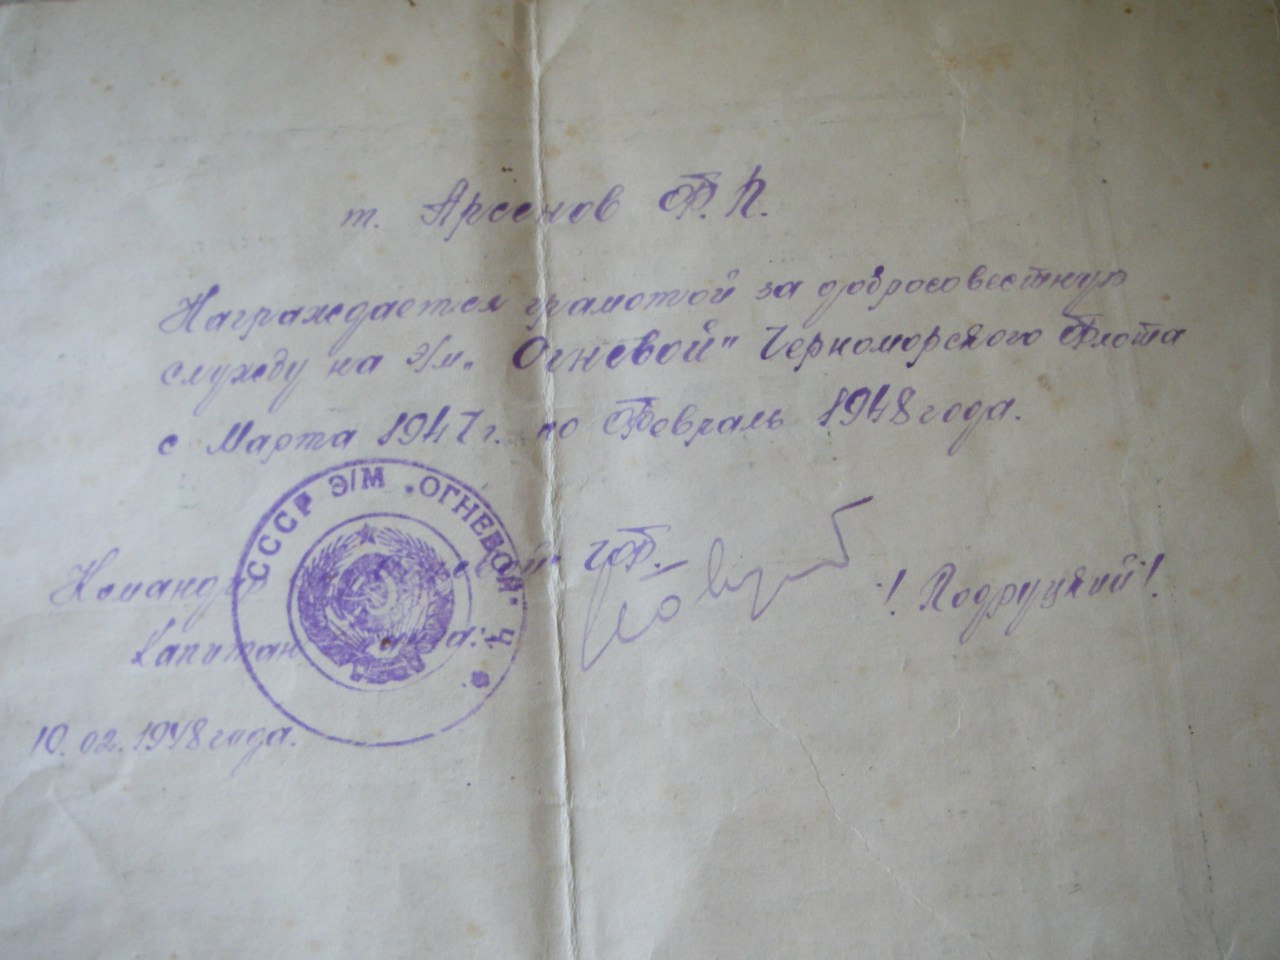 т. Арсенов Ф. П.
Награждается грамотой за добросовестную
службу на э/м „Огневой" Черноморского Флота
с Марта 1947 г. по Февраль 1948 года.
СССР Э/М „ОГНЕВОЙ" Ч Ф
Командир „Огневой" ЧФ.
Капитан
! Подруцкий !
10.02.1948 года.